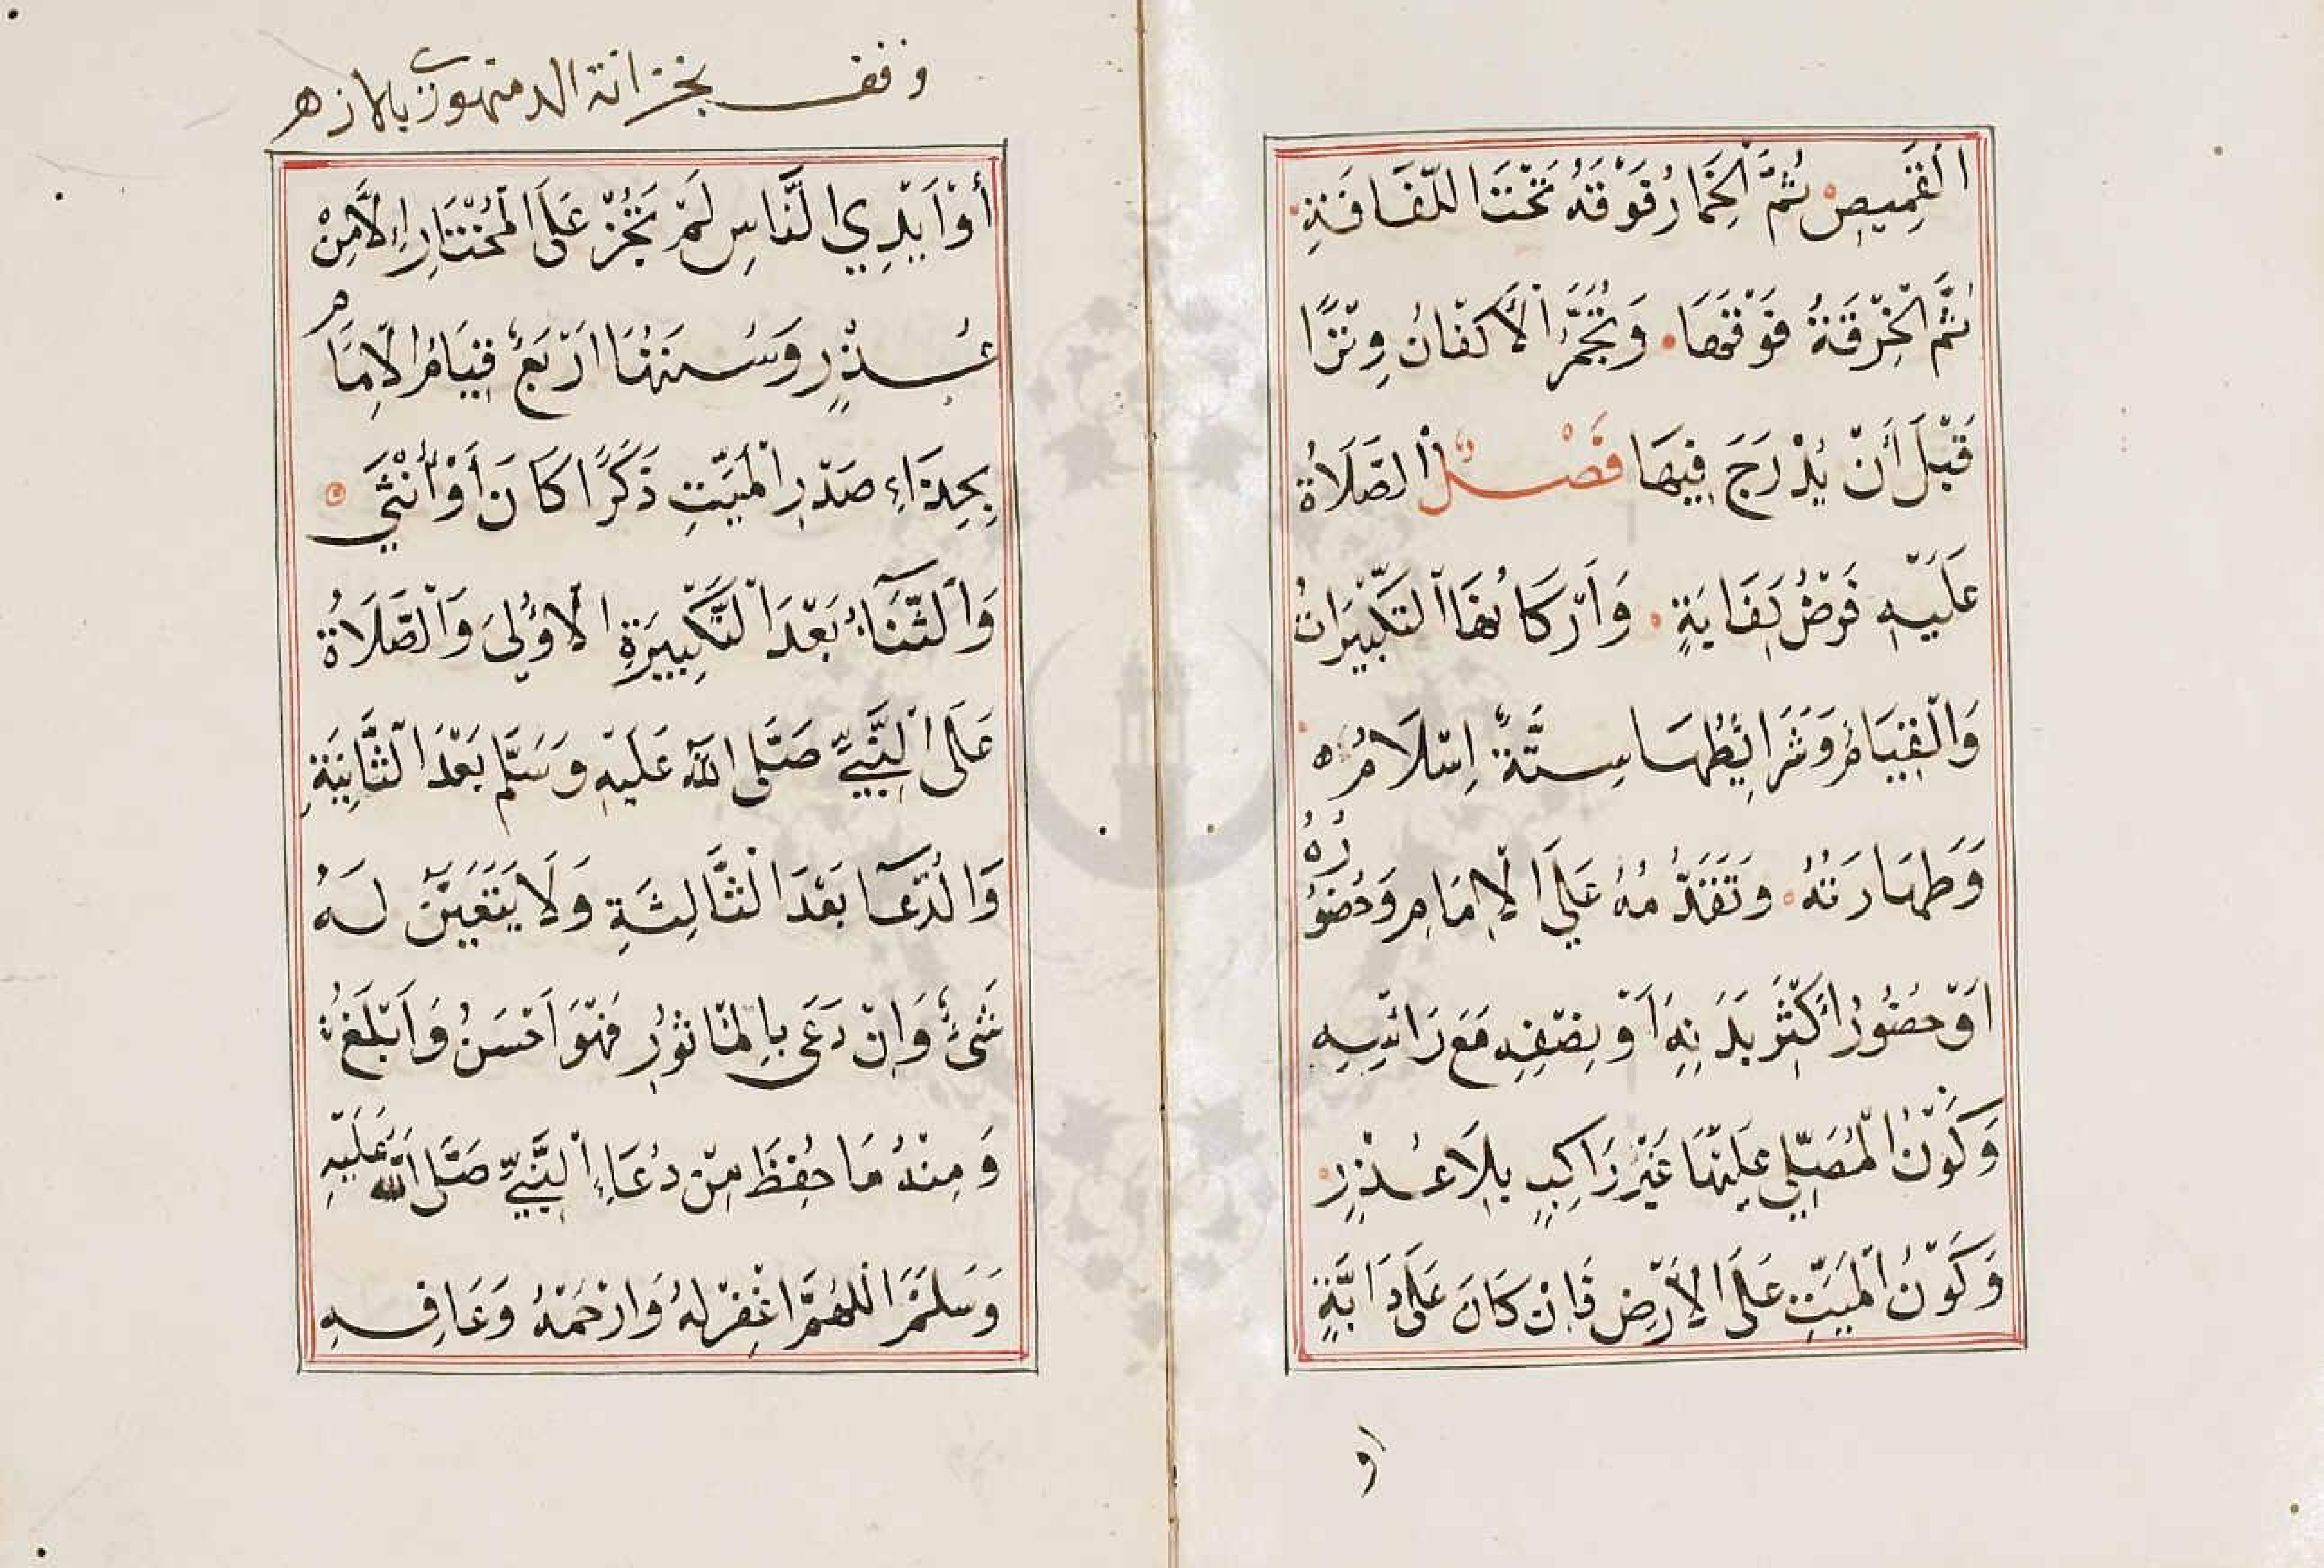 الْقَمِيصِ ثُمَّ الْخِمَارُ فَوْقَهُ تَحْتَ اللّفَافَةِ
ثُمَّ الْخِرْقَةُ فَوْقَهَا وَتُجَمَّرُ الْأَكْفَانُ وِتْرًا
قَبْلَ أَنْ يُدْرَجَ فِيهَا فَصْلٌ الصَّلَاةُ
عَلَيْهِ فَرْضُ كِفَايَةٍ وَاَرْكَانُهَا التَّكْبِيْرَاتُ
وَالْقِيَامُ وَشَرَائِطُهَا سِتَّةٌ إِسْلَامُهُ
وَطَهَارَتُهُ وَتَقَدُّمُهُ عَلَى الْاِمَامِ وَحُضُورُهُ
اَوْ حُضُورُ أَكْثَرِ بَدَنِهِ اَوْ نِصْفِهِ مَعَ رَائْسِهِ
وَكَوْنُ الْمُصَلِّي عَلَيْهَا غَيْرَ رَاكِبٍ بِلَا عُذْرٍ
وَكَوْنُ الْمَيِّتِ عَلَى الْأَرْضِ فَاِنْ كَانَ عَلَى دَابَّةٍ
او
وقف بخزانة الدمنهورى بالازهر
أَوْ اَيْدِي النَّاسِ لَمْ تَجُزْ عَلَى الْمُخْتَارِ اِلَّا مِنْ
عُذْرٍ وَسُنَنُهَا اَرْبَعٌ قِيَامُ الْاِمَامِ
بِحِذَاءِ صَدْرِ الْمَيِّتِ ذَكَرًا كَانَ أَوْ أُنْثَى
وَالثَّنَآءُ بَعْدَ التَّكْبِيرَةِ الْاُوْلَى وَالصَّلَاةُ
عَلَى النَّبِيِّ صَلَّى اللّٰهُ عَلَيْهِ وَسَلَّم بَعْدَ الثَّانِيَةِ
وَالدُّعَآ بَعْدَ الثَّالِثَةِ وَلَا يَتَعَيَّنُ لَهُ
شَىْءٌ وَاِنْ دَعَى بِالْمَاثُورِ فَهُوَ اَحْسَنُ وَاَبْلَغُ
وَمِنْهُ مَا حُفِظَ مِنْ دُعَاءِ النَّبِيِّ صَلَّى اللّٰهُ عَلَيْهِ
وَسَلَّمَ اللهُمَّ اغْفِرْ لَهُ وَارْحَمْهُ وَعَافِهِ